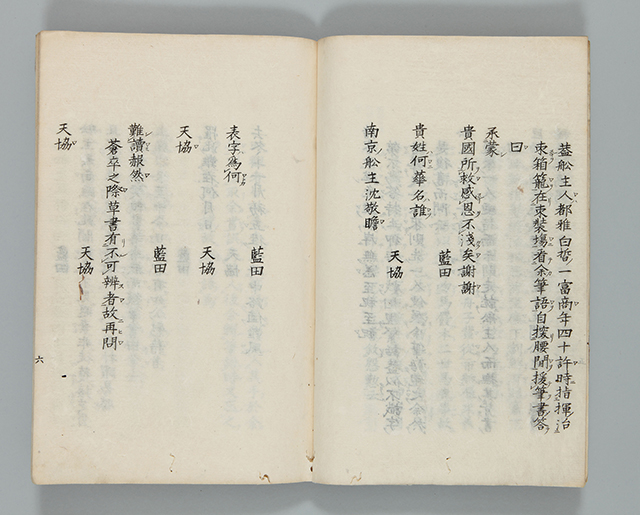 蓋舩主人都雅白皙一富商年四十許時指揮治
束箱籠在束裝場看余筆語自搜腰間援筆書答
曰
承蒙
貴國所救感恩不淺矣謝謝
藍田
貴姓何華名誰
天協
南京舩主沈敬瞻
藍田
表字為何
天協
天協
藍田
難讀赧然
蒼卒之際草書有不可辨者故再問
天協
天協
六